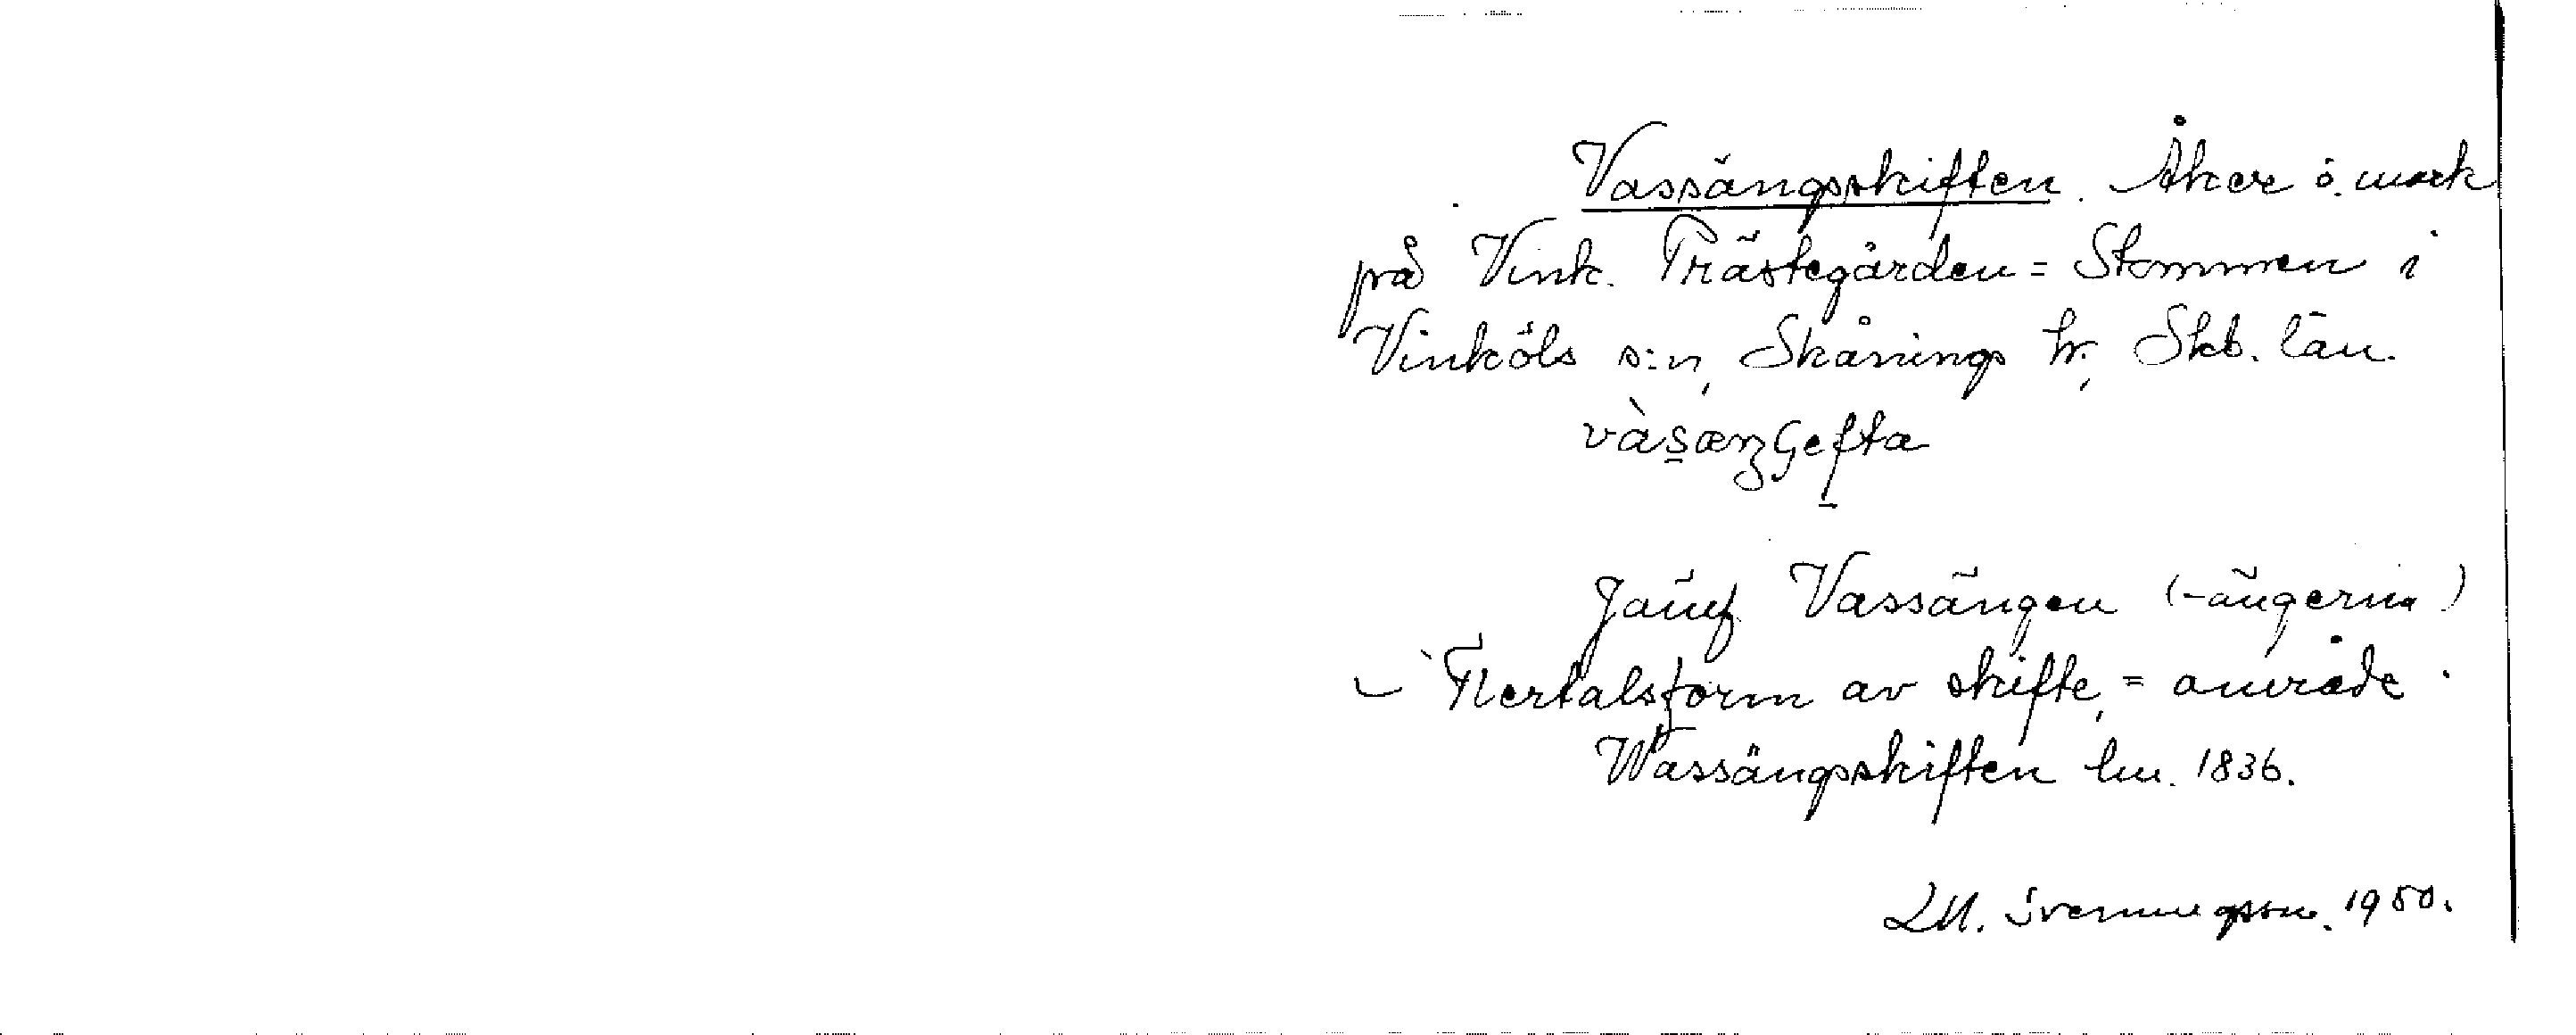 Vassängsskiften. Åker o. mark
på Vink. Prästegården = Stommen i
Vinköls s:n, Skånings hr, Skb. län.
Jämf. Vassängen (-ängerna)
Flertalsform av skifte, = område.
Wassängsskiften lm. 1836.
LM. Svenningsson. 1950.